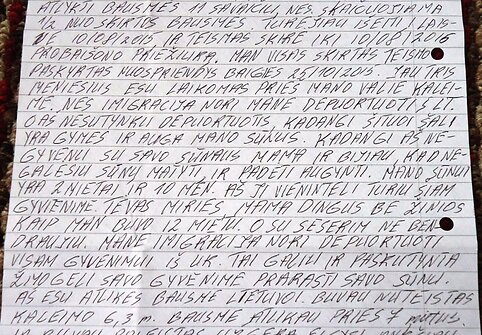 ATLYKTI BAUSMĖS 11 SAVAIČIŲ, NES SKAIČUOJAMA
1/2 NUO SKIRTOS BAUSMĖS. TURĖJAU IŠEITI Į LAIS-
VĘ 10/08/2015 IR TEISMAS SKIRĖ IKI 10/08/2016
PROBAIŠONO PRIEŽIŪRĄ. MAN VISAS SKIRTAS TEISMO
PASKYRTAS NUOSPRIENDYS BAIGĖS 25/10/2015. JAU TRIS
MENIESIUS ESU LAIKOMAS PRIEŠ MANO VALIE KALĖJI-
ME, NES IMIGRACIJA NORI MANE DEPUORTUOTI Š LT
O AŠ NESUTYNKU DEPUORTUOTIS, KADANGI ŠITUOJ ŠALI
YRA GYMĘS IR AUGA MANO SŪNUS. KADANGI AŠ NE-
GYVENU SU SAVO SŪNAUS MAMA IR BIJIAU, KAD NE-
GALĖSIU SŪNŲ MATYTI IR PADĖTI AUGYNTI. MANO SŪNUI
YRA 2 METAI IR 10 MĖN. AŠ JĮ VIENINTELĮ TURIU ŠIAM
GYVENIME. TĖVAS MIRĘS, MAMA DINGUS BE ŽINIOS
KAIP MAN BUVO 12 METŲ. O SU SESERIM NE BEN-
DRAUJU. MANE IMIGRACIJA NORI DEPUORTUOTI
VISAM GYVENIMUI IŠ UK. TAI GALIU IR PASKUTYNTĄ
ŽMOGELĮ SAVO GYVENIME PRARASTI SAVO SŪNŲ.
AŠ ESU ATLIKĘS BAUSMĘ LIETUVOJ. BUVAU NUTEISTAS
KALĖJIMO 6,3 m. BAUSMĘ ATLIKAU PRIEŠ 7 METUS.